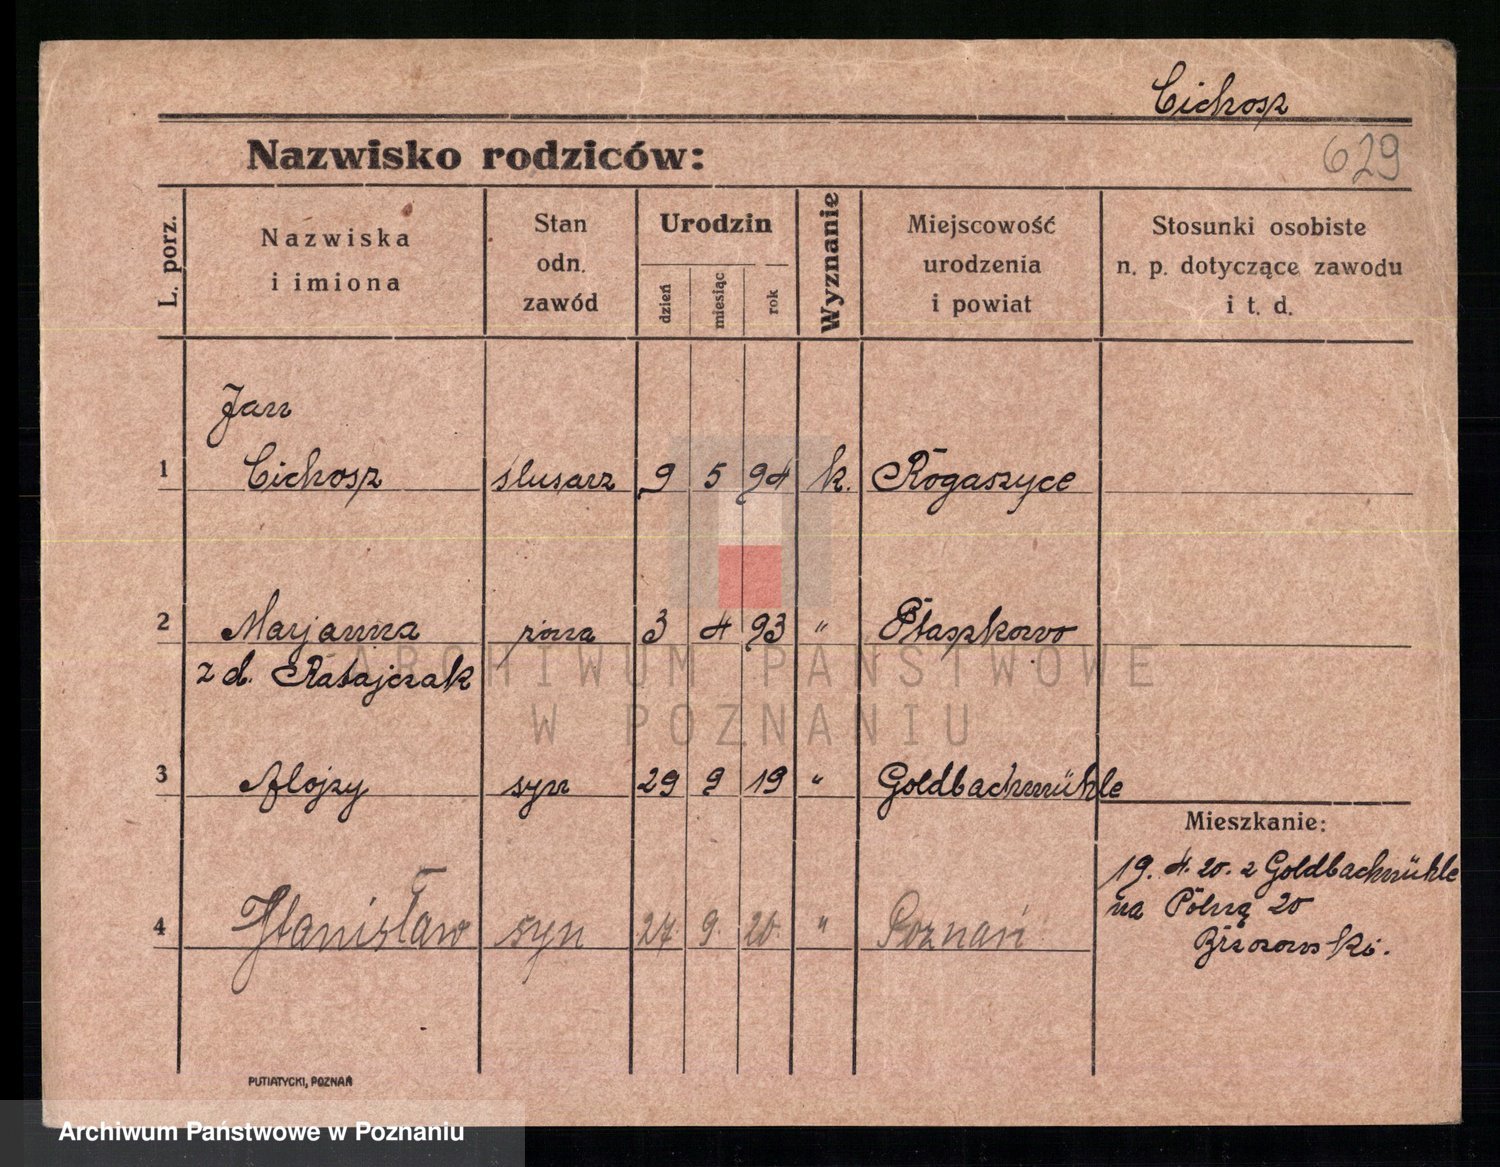 Cichosz
629
Nazwisko rodziców:
L. porz.
Nazwiska
i imiona
Stan
odn.
zawód
Urodzin
dzień
miesiąc
rok
Wyznanie
Miejscowość
urodzenia
i powiat
Stosunki osobiste
n. p. dotyczące zawodu
i t. d.
Jan
1 Cichosz ślusarz 9 5 94 k. Rogaszyce
2 Marjanna żona 3 4 93 " Ptaszkowo
z d. Ratajczak
3 Alojzy syn 29 9 19 " Goldbachmühle
Mieszkanie:
19. 4. 20. z Goldbachmühle
na Polną 20
Brzozowski.
4 Stanisław syn 27. 9. 20. " Poznań
PUTIATYCKI, POZNAŃ
ARCHIWUM PAŃSTWOWE
W POZNANIU
Archiwum Państwowe w Poznaniu